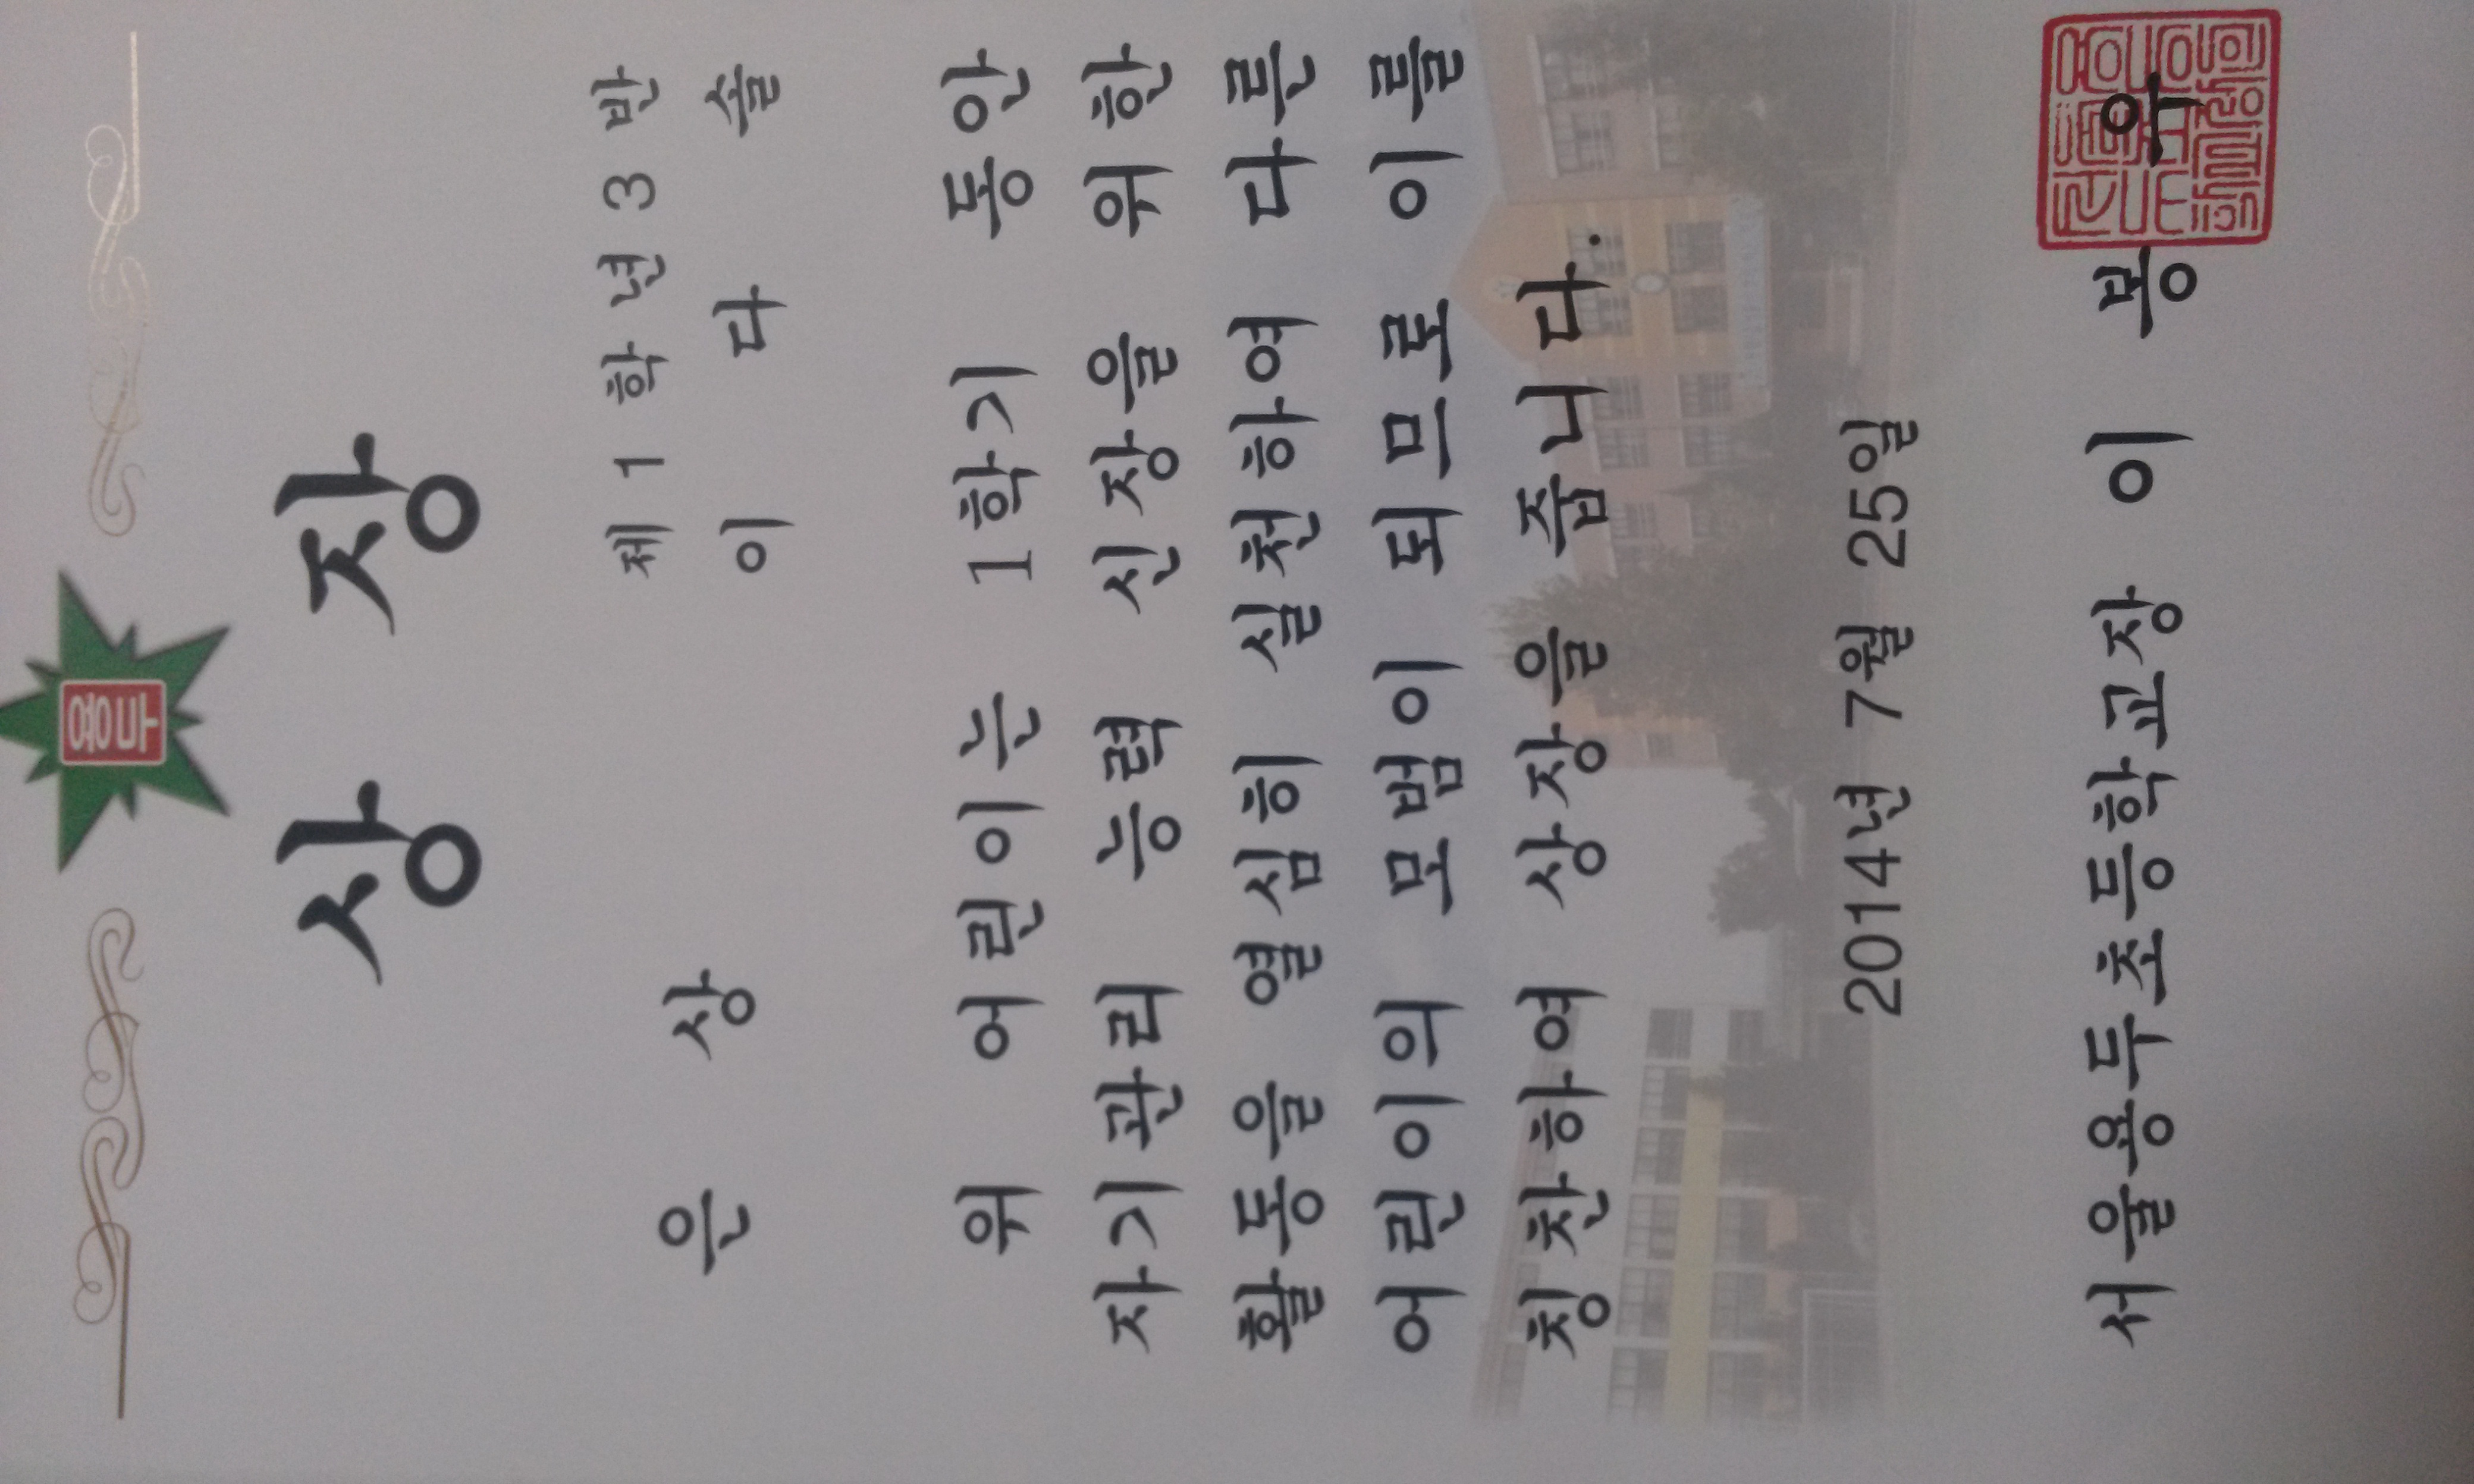 영마
상 장
제 1 학년 3 반
은 상
이 다 솔
위 어린이는 1학기 동안
자기관리 능력 신장을 위한
활동을 열심히 실천하여 다른
어린이의 모범이 되므로 이를
칭찬하여 상장을 줍니다.
2014년 7월 25일
서울용두초등학교장 이 봉 우